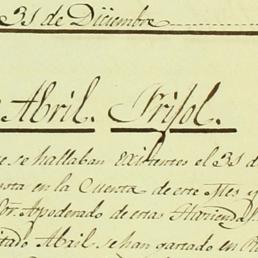 31 de Diciembre
Abril. Frisol.
se hallaban existentes el 31 d
esta en la Cuenta de este Mes y
or. Apoderado de estas Hacienda
itado Abril se han gastado en